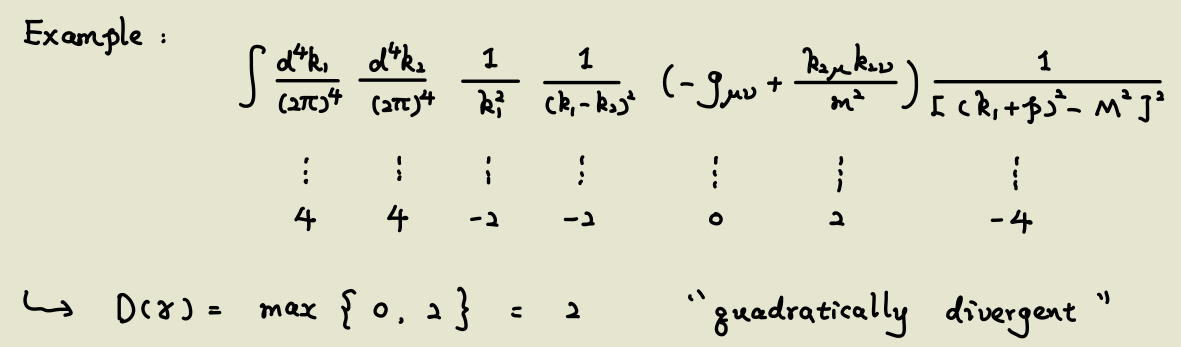 Example :
∫ d⁴k₁/(2π)⁴ d⁴k₂/(2π)⁴ 1/k₁² 1/(k₁-k₂)² (-gμν + k₂μk₂ν/m²) 1/[(k₁+p)²-M²]²
4 4 -2 -2 0 2 -4
↪ D(γ) = max { 0, 2 } = 2 "quadratically divergent"